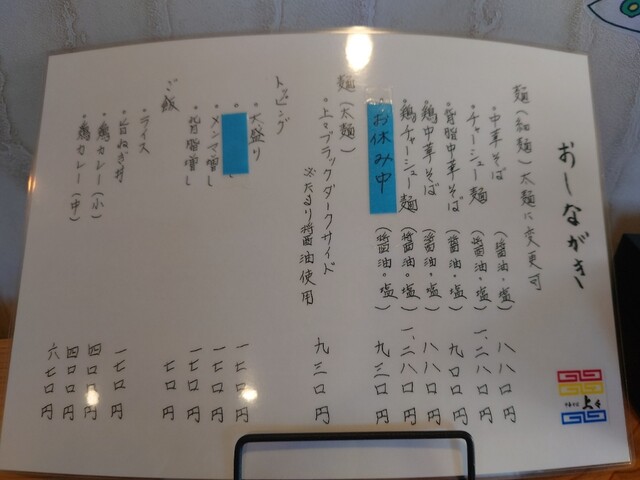 おしながき
麺（細麺）太麺に変更可
・中華そば（醤油・塩）八八〇円
・チャーシュー麺（醤油・塩）一、二八〇円
・背脂中華そば（醤油・塩）九〇〇円
・鶏中華そば（醤油・塩）八八〇円
・鶏チャーシュー麺（醤油・塩）一、二八〇円
お休み中（醤油・塩）九三〇円
麺（太麺）
・上々ブラックダークサイド 九三〇円
※たまり醤油使用
トッピング
・大盛り 一七〇円
一七〇円
・メンマ増し 一七〇円
・背脂増し 七〇円
ご飯
・ライス 一七〇円
・旨ねぎ丼 四〇〇円
・鶏カレー（小）四〇〇円
・鶏カレー（中）六七〇円
上々